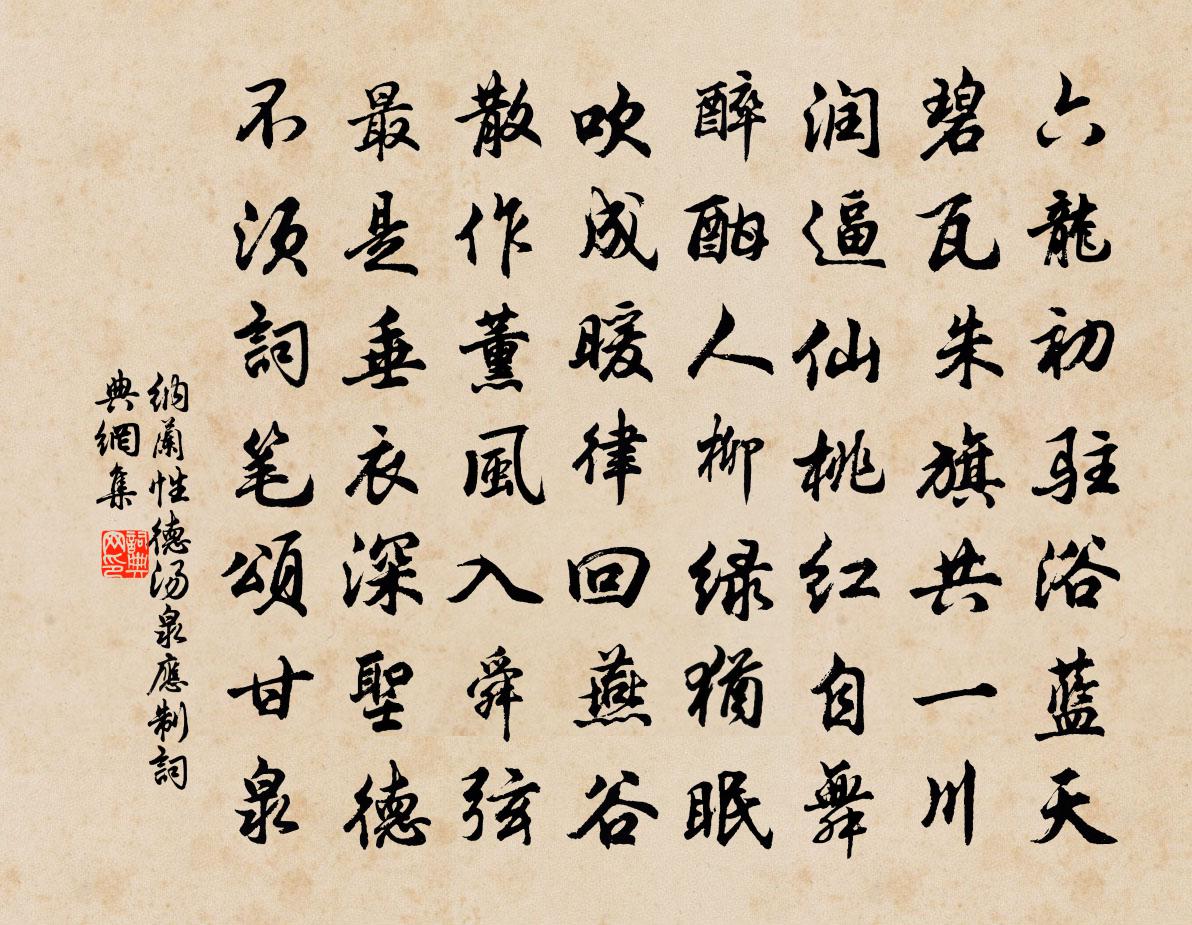 六龍初駐浴蓝天
碧瓦朱旗共一川
润逼仙桃红自舞
醉酣人柳绿猶眠
吹成暖律回燕谷
散作薰風入舜弦
最是垂衣深聖德
不须詞笔頌甘泉
纳蘭性德汤泉應制詞
典網集
詞典
网印